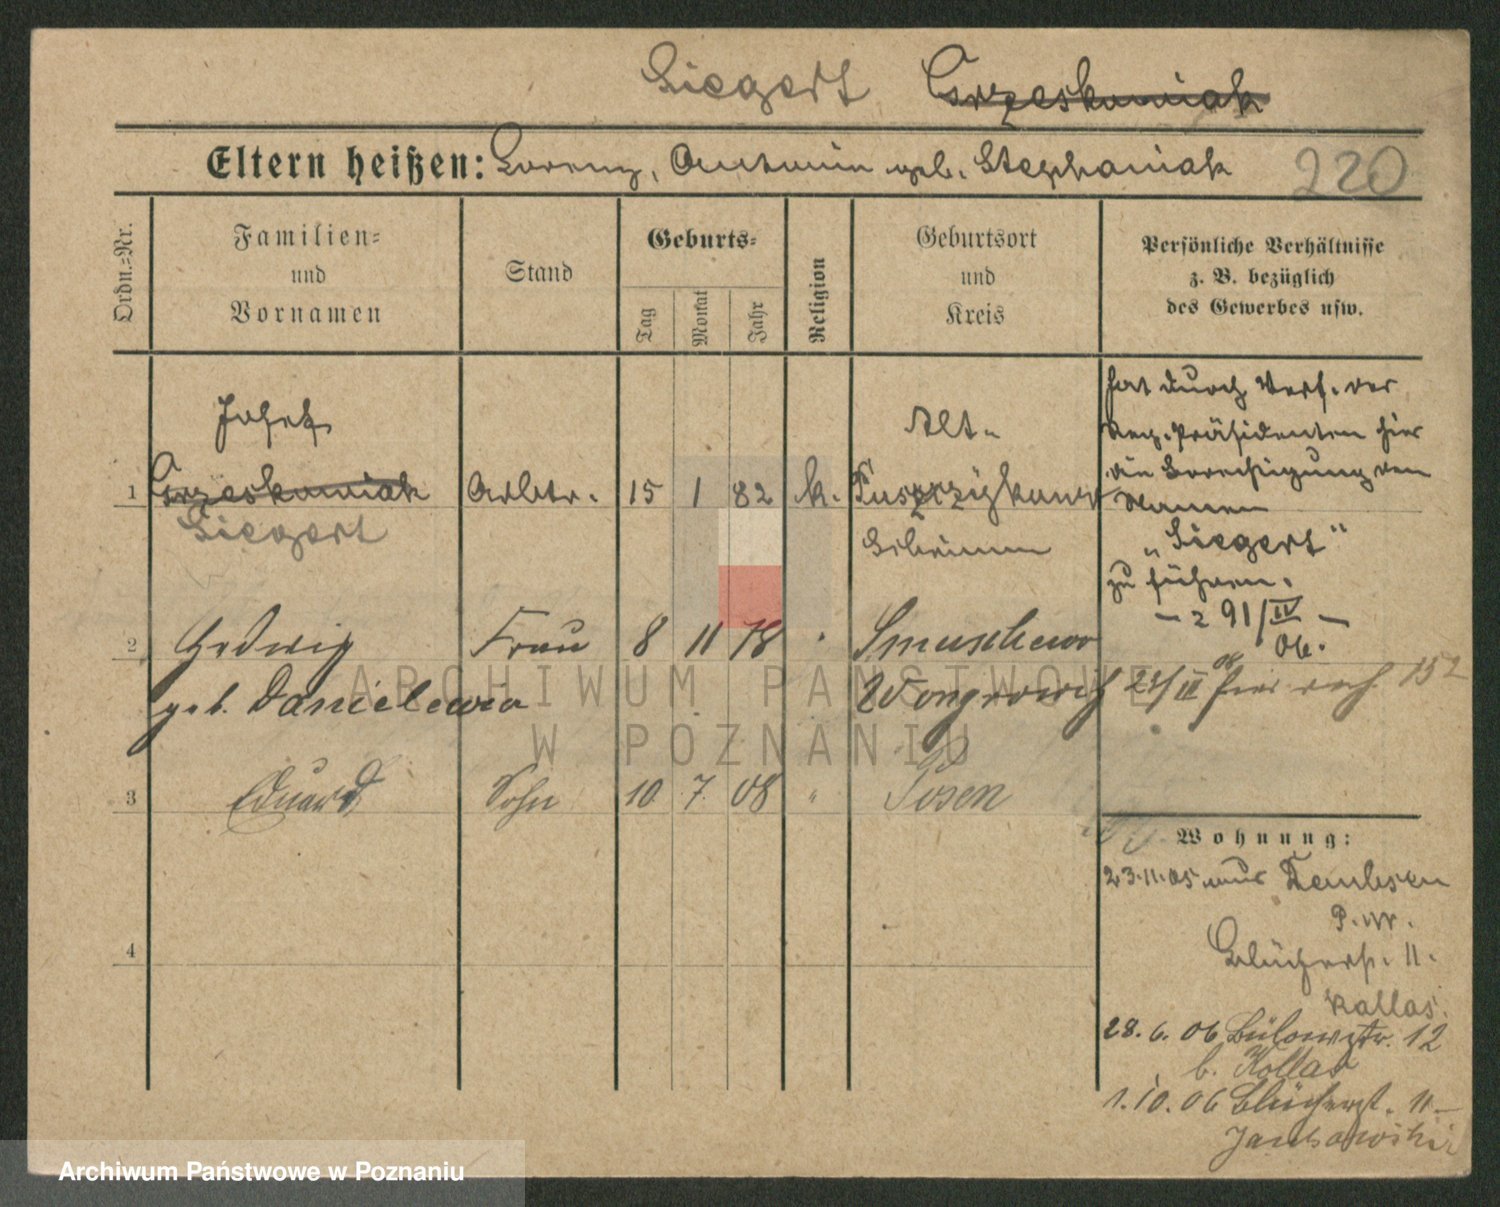 Siegert Grzeskowiak
Eltern heißen: Lorenz, Antonin geb. Stephaniak 220
Ordn.-Nr.
Familien-
und
Vornamen
Stand
Geburts-
Tag
Monat
Jahr
Religion
Geburtsort
und
Kreis
Persönliche Verhältnisse
z. B. bezüglich
des Gewerbes usw.
Josef
1 Grzeskowiak Arbtr. 15 1 82 k.
Siegert
Alt-
Schrimm
hat durch Verf. des
Reg. Präsidenten hier
die Berechtigung den
Namen
„Siegert"
zu führen.
- 291/IV -
06.
2 Hedwig Frau 8 11 78 "
geb. Danielewia Wongrowitz
152
3 Eduard Sohn 10 7. 08 " Posen
Wohnung:
23.11.05 aus Dembsen
P. W.
Blücherst. 11.
Kallas.
28. 6. 06 Bülowstr. 12
b. Kollas
1. 10. 06 Blücherst. 11 -
Jankowski
4
ARCHIWUM PAŃSTWOWE
W POZNANIU
Archiwum Państwowe w Poznaniu